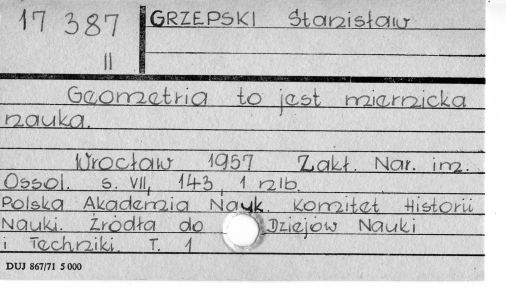 17 387
II
GRZEPSKI Stanisław
Geometria to jest miernicka
nauka.
Wrocław 1957 Zakł. Nar. im.
Ossol. s. VII, 143, 1 nlb.
Polska Akademia Nauk. Komitet Historii
Nauki. Źródła do Dziejów Nauki
i Techniki. T. 1
DUJ 867/71 5 000